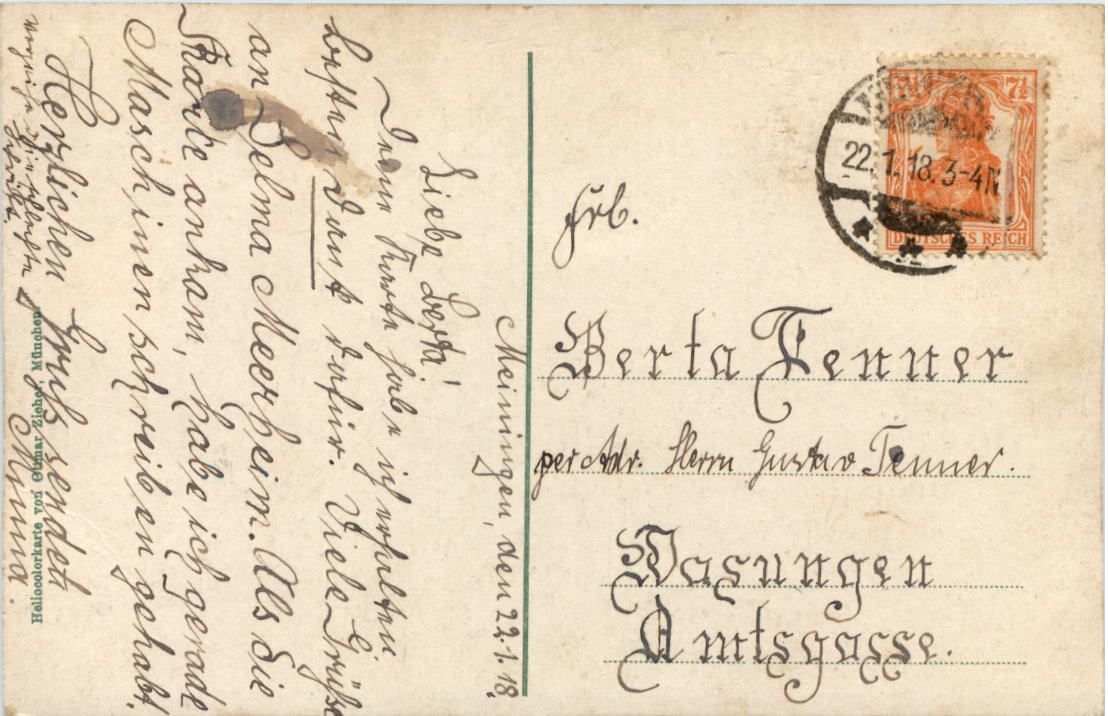 Meiningen, den 22.1.18.
Liebe Berta!
Deine Karte habe ich erhalten
besten Dank dafür. Viele Grüße
an Selma Meerheim. Als die
Karte ankam, habe ich gerade
Maschinenschreiben gehabt.
Herzlichen Gruß sendet
Minna.
Heliocolorkarte von Ottmar Zieher, München
Frl.
Berta Tenner
per Adr. Herrn Gustav Tenner.
Wasungen
Amtsgasse.
22.1.18. 3-4N
7½ 7½
DEUTSCHES REICH